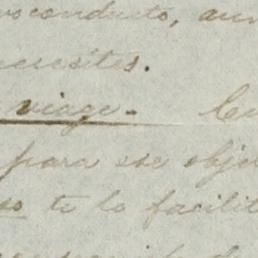 voconducto, aun
necesites.
viage.-
para ese obje
so te lo facilit